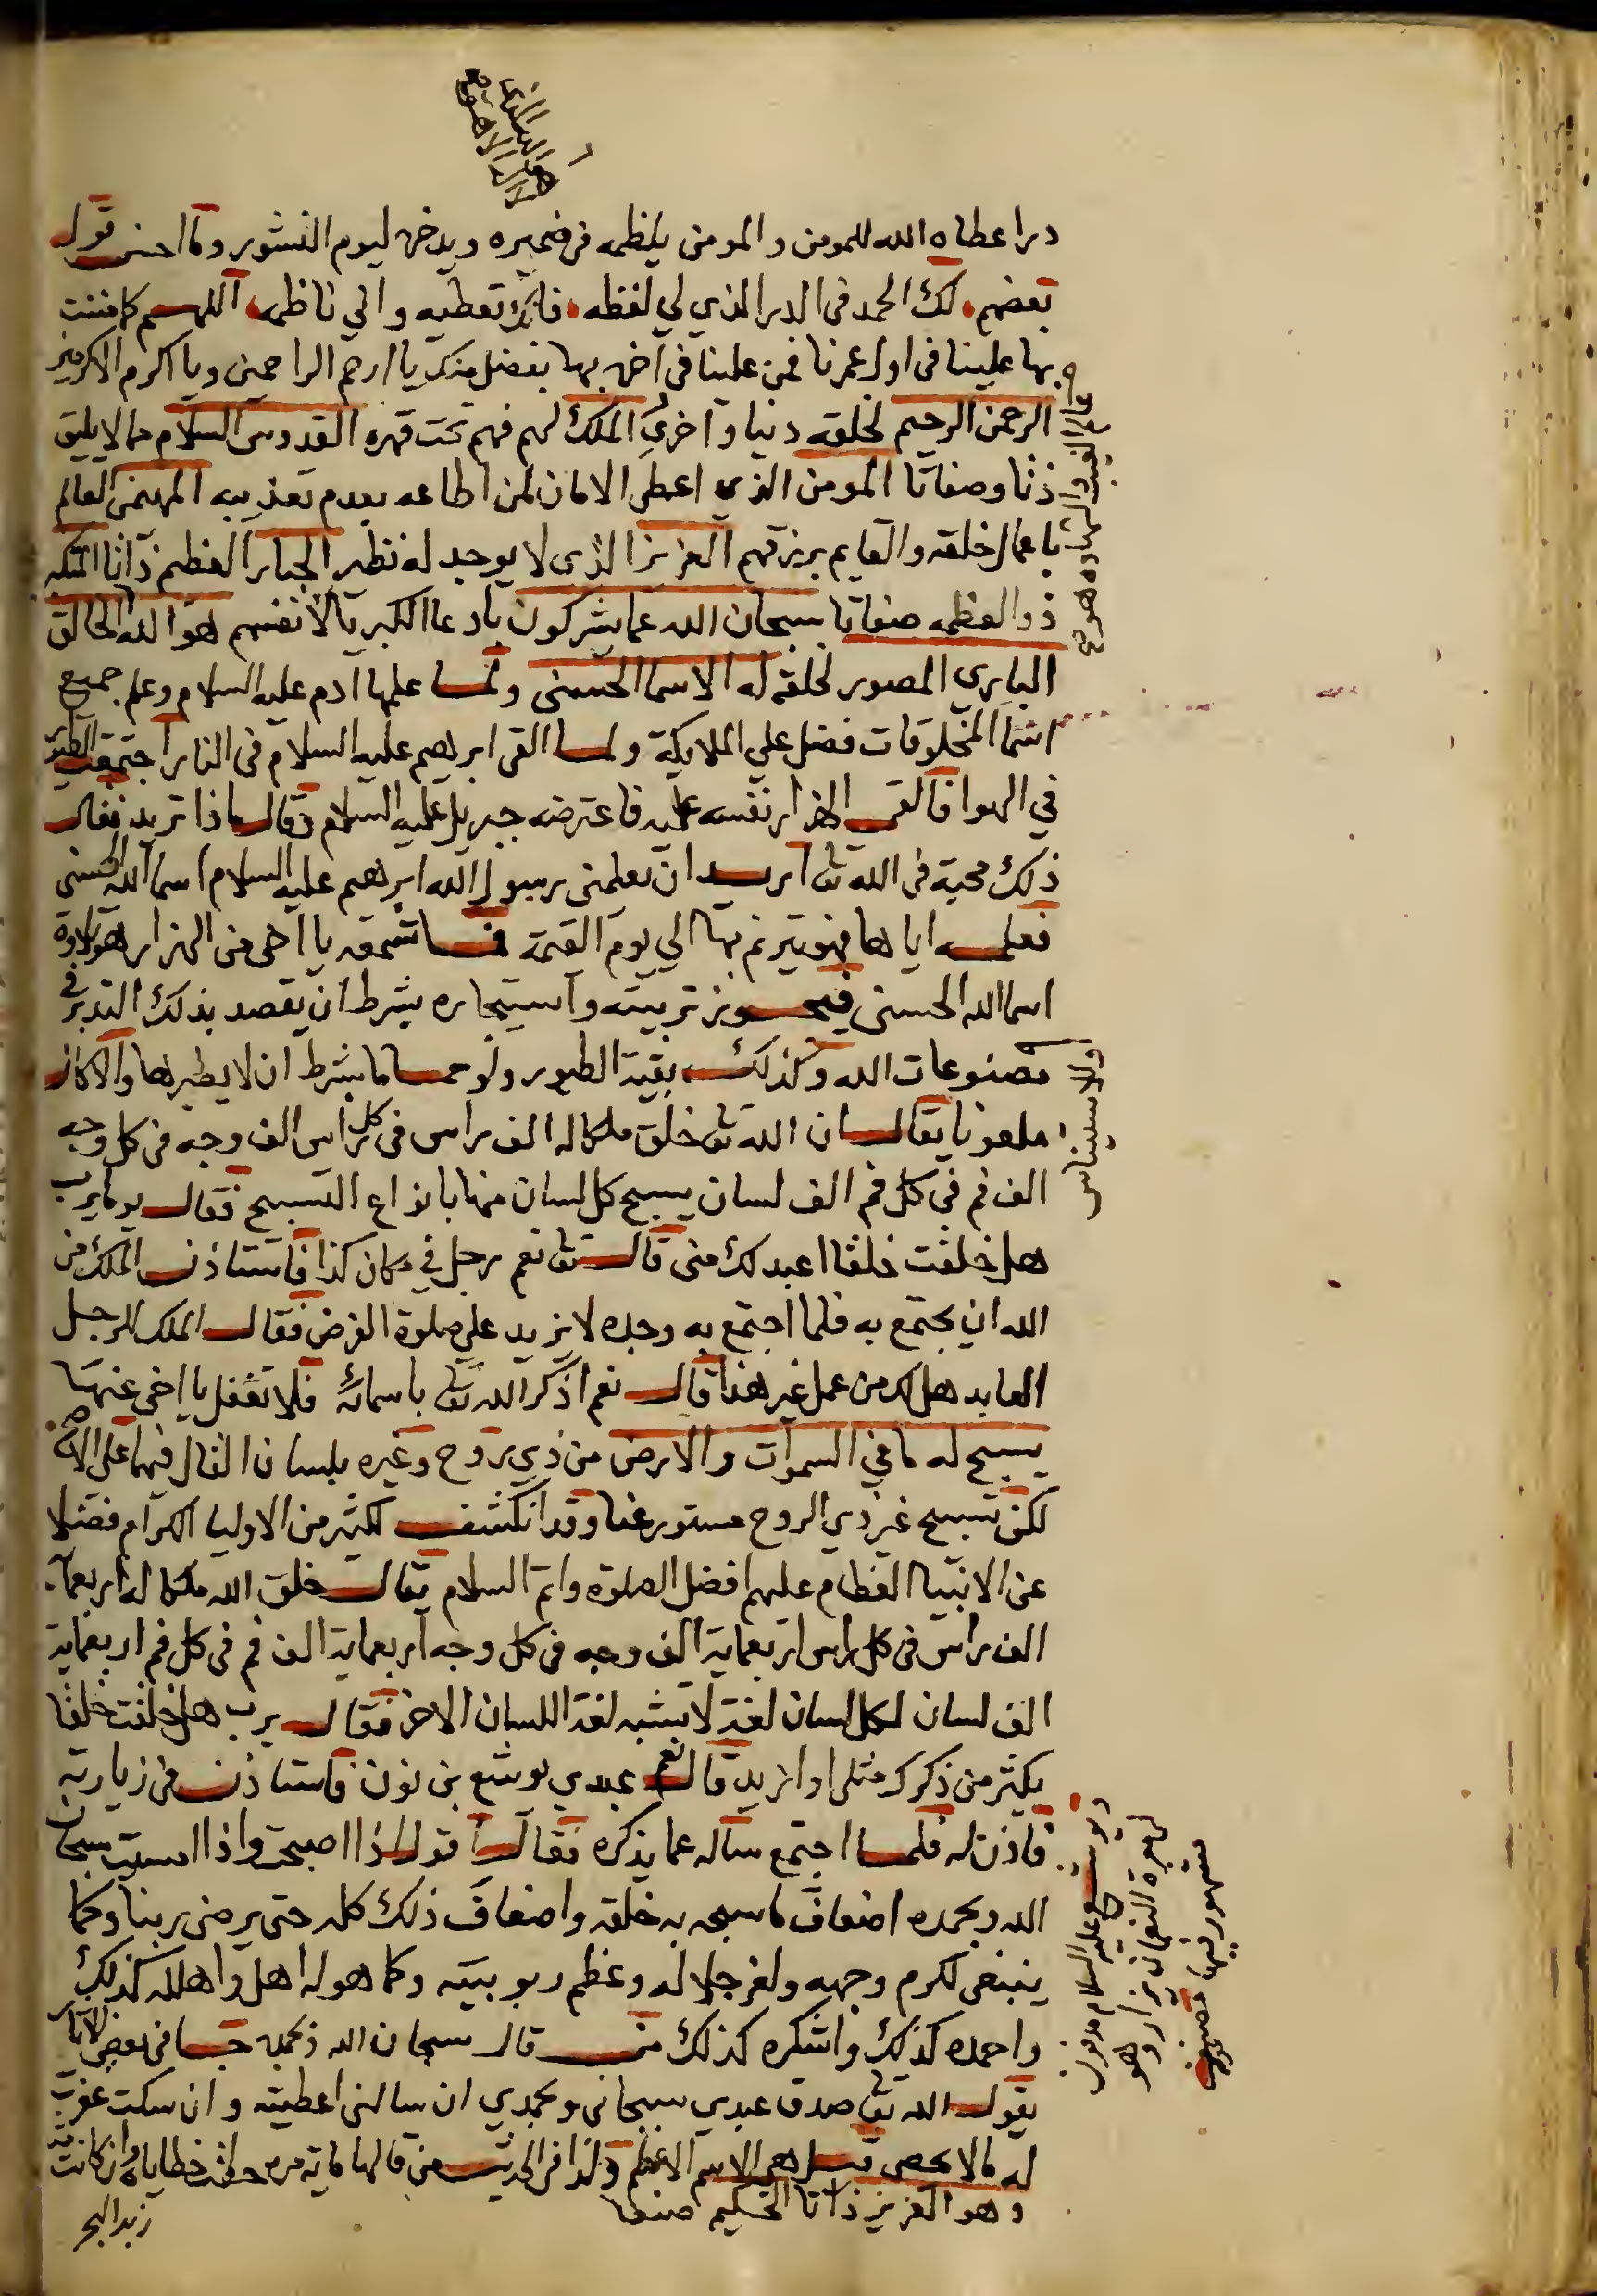 درا عطاه الله للمومن والمومن يلظمه في ضميره ويدخره ليوم النشور وما احسن قول
بعضهم لك الحمد في الدر الذي لي لفظه فانك تعطيه واني ناظمه اللهم كما مننت
بها علينا في اول عمرنا فمن علينا في اخره بها بفضل منك يا ارحم الراحمين ويا اكرم الاكرمين
هو
عالم الغيب والشهادة هو
الرحمن الرحيم لخلقه دنيا واخري الملك لهم فهم تحت قهره القدوس السلام مما لا يليق
ذاتا وصفاتا المومن الذي اعطي الامان لمن اطاعه بعدم تعذيبه المهيمن العالم
باعمال خلقه والقايم برزقهم العزيز الذي لا يوجد له نظير الجبار العظيم ذاتا المتكبر
ذو العظمه صفاتا سبحان الله عما يشركون بادعا الكبريا لانفسهم هو الله الخالق
الباري المصور لخلقه له الاسما الحسني ولما علمها ادم عليه السلام وعلم جميع
اسما المخلوقات فضل علي الملايكة ولما القي ابرهيم عليه السلام في النار اجتمعت الطير
في الهوا فالقي الهزار نفسه عليه فاعترضه جبريل عليه السلام وقال ماذا تريد فقال
ذلك محبة في الله تع اريد ان يعلمني رسول الله ابرهيم عليه السلام اسما الله الحسني
فعلمه اياها فهو يترنم بها الي يوم القيمة فما تسمعه يا اخي من الهزار هو تلاوة
اسما الله الحسني فيجوز تربيته واستيجاره بشرط ان يقصد بذلك التدبر في
مصنوعات الله وكذلك بقية الطيور ولو حماما بشرط ان لا يطيرها والا كان
ملعونا يقال ان الله تع خلق ملكا له الف راس في كل راس الف وجه في كل وجه
الف فم في كل فم الف لسان يسبح كل لسان منها بانواع التسبيح فقال يوما يرب
هل خلقت خلقا اعبد لك مني قال تع نعم رجل في مكان كذا فاستاذن الملك من
الله ان يجتمع به فلما اجتمع به وجده لا يزيد علي صلوة الفرض فقال الملك للرجل
العابد هل لك من عمل غير هذا قال نعم اذكر الله تع باسمائه فلا تغفل يا اخي عنها
يسبح له ما في السموات والارض من ذي روح وغيره بلسان القال فيهما علي الاصح
لكن تسبيح غير ذي الروح مستور عنا وقد انكشف لكثير من الاوليا الكرام فضلا
عن الانبيا العظام عليهم افضل الصلوة واتم السلام يقال خلق الله ملكا له اربعماية
الف راس في كل راس اربعماية الف وجه في كل وجه اربعماية الف فم في كل فم اربعماية
الف لسان لكل لسان لغة لا تشبه لغة اللسان الاخر فقال يرب هل خلقت خلقا
يكثر من ذكرك مثلي او ازيد قال نعم عبدي يوشع بن نون فاستاذن في زيارته
فاذن له فلما اجتمع ساله عما يذكره فقال اقول اذا اصبحت واذا امسيت سبحان
الله وبحمده اضعاف ما سبحه به خلقه واضعاف ذلك كله حتي يرضي ربنا وكما
ينبغي لكرم وجهه ولعز جلاله وعظم ربوبيته وكما هو له اهل واهلله كذلك
واحمده كذلك واشكره كذلك من قال سبحان الله وبحمده جا في بعض الاثار
يقول الله تع صدق عبدي سبحاني وبحمدي ان سالني اعطيته وان سكت غفرت
له ما لا يحصي قيل هي الاسم الاعظم وكذا في الحديث من قالها ماية مرة حطت خطاياه وان كانت
وهو العزيز ذاتا الحكيم صنعا
زبد البحر
ويوشع عليه السلام مدفون
مشهور فيها